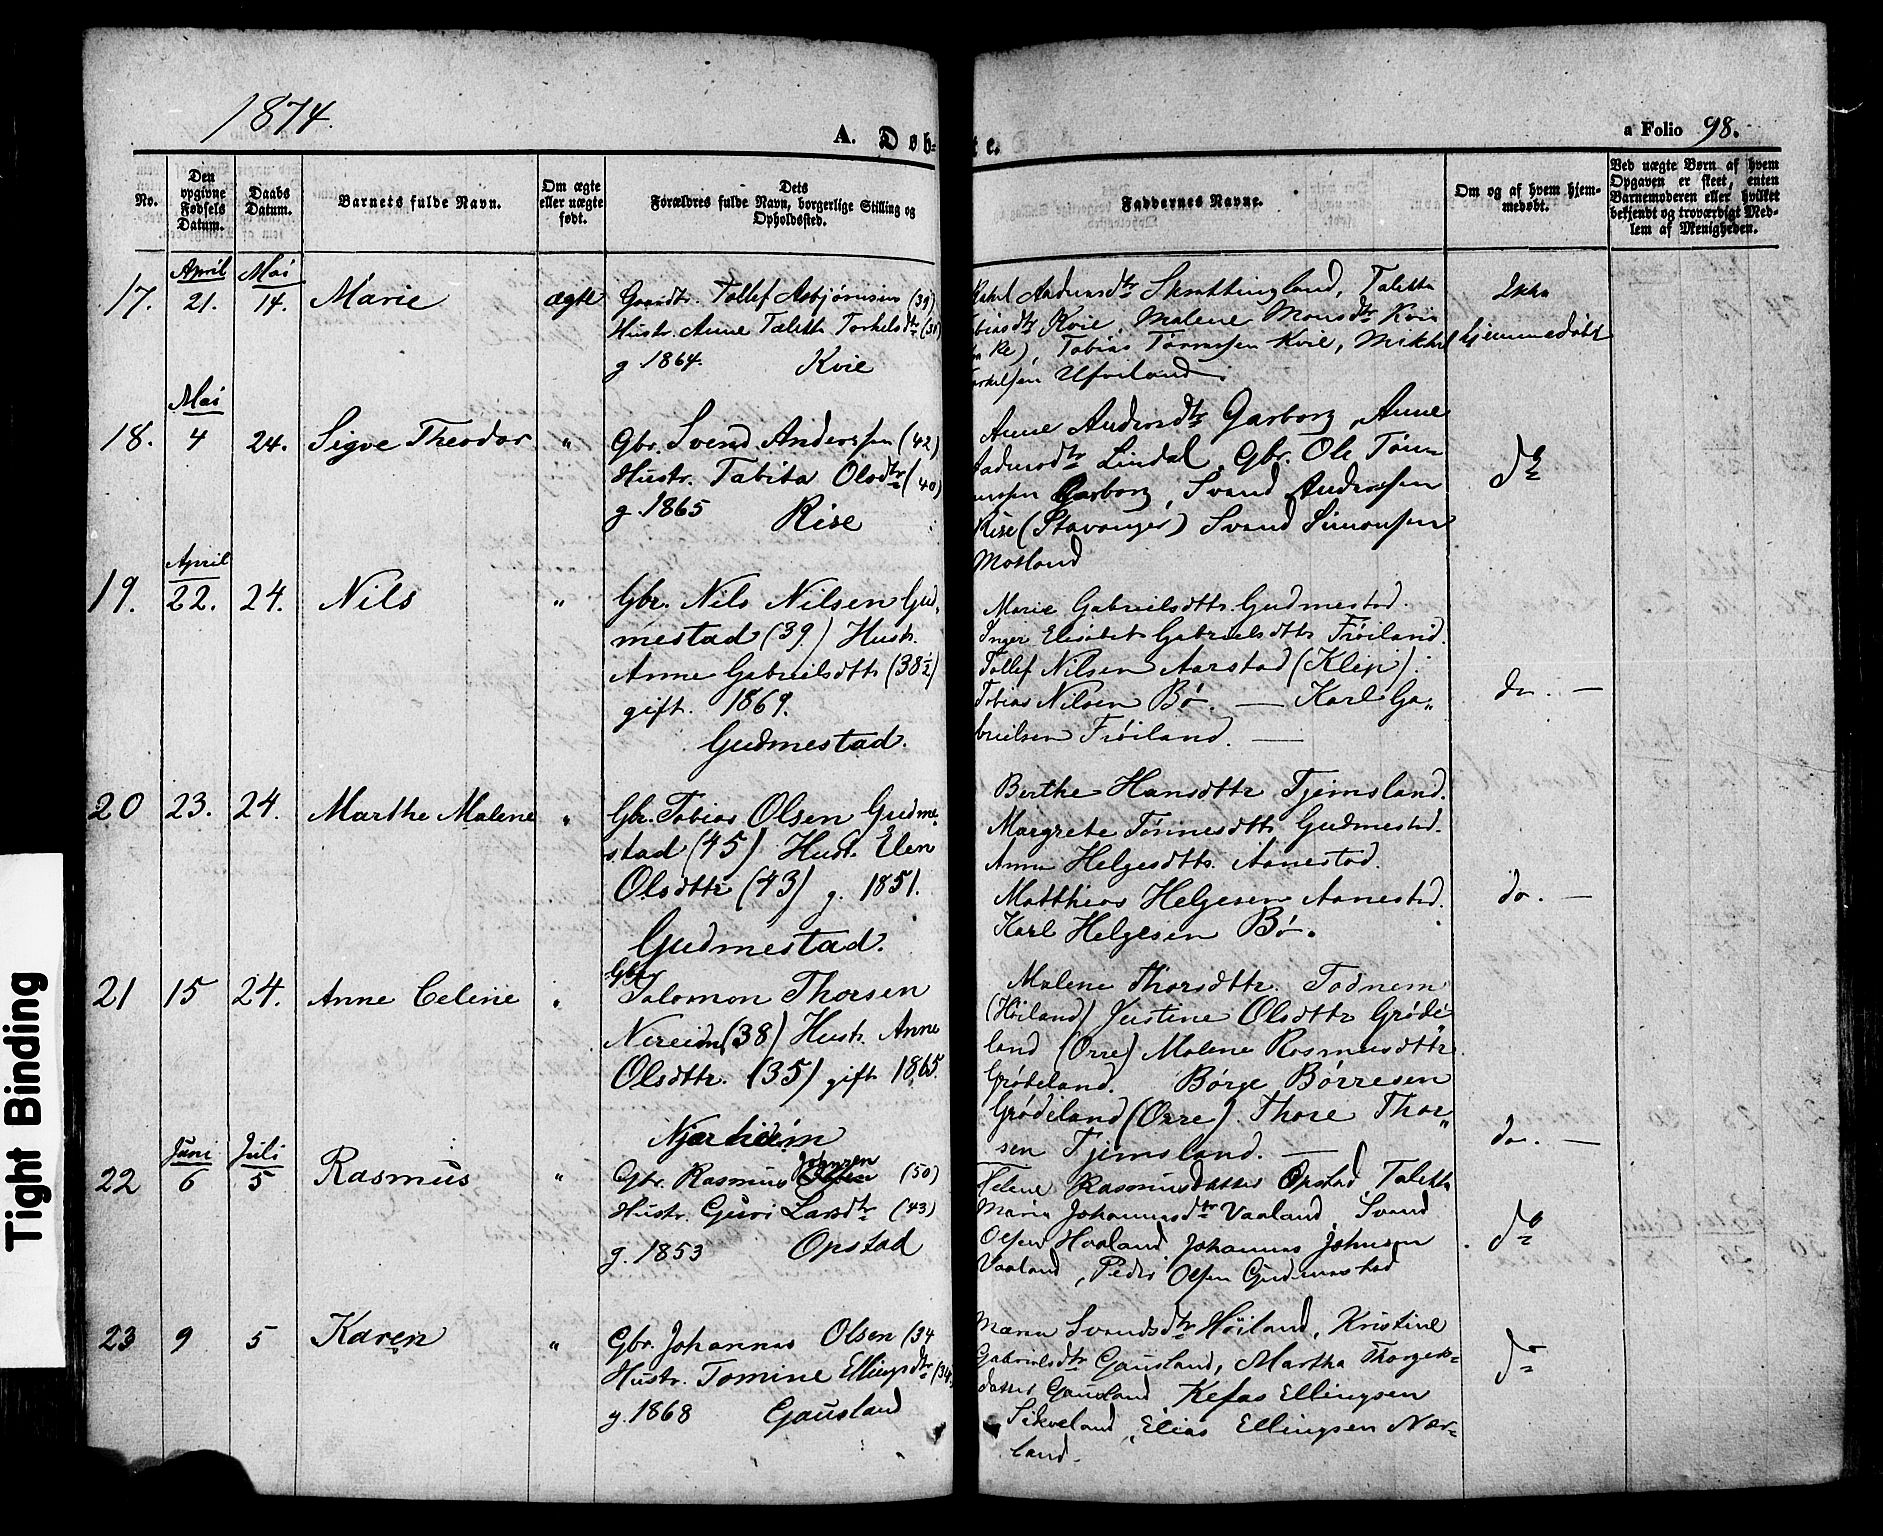 1874.
A. Døbte.
a Folio 98.
No.
Den opgivne Fødsels Datum.
Daabs Datum.
Barnets fulde Navn.
Om ægte eller uægte født.
Dets Forældres fulde Navn, borgerlige Stilling og Opholdssted.
Faddernes Navne.
Om og af hvem hjemmedøbt.
Ved uægte Børn af hvem Opgaven er skeet, enten Barnemoderen eller hvilket bekjendt og troværdigt Medlem af Menigheden.
17. April 21. Mai 14. Marie ægte
Gaardbr. Tollef Asbjørnsen (39)
Hustr. Anne Taletta Torkelsdtr
g. 1864. Kvie
Andersdtr Skrettingland, Taletta
Tobiasdtr Kvie, Malene Monsdtr Kvie
Tobias Tønnessen Kvie, Mikkel
Torkelsen Ufsviland.
Ikke
hjemmedøbt
18. Mai 4 24. Sigve Theodor "
Gbr. Svend Anderssen (42)
Hustr. Tabita Olsdtr (40)
g. 1865 Rise
Anne Andersdtr Garborg, Anne
Andersdtr Lindal, Gbr. Ole Tøn-
nessen Garborg, Svend Anderssen
Rise (Stavanger) Svend Simonsen
Motland
do
19. April 22. 24. Nils "
Gbr. Nils Nilsen Gud-
mestad (39) Hustr.
Anne Gabrielsdtr (38½)
gift. 1869.
Gudmestad.
Marie Gabrielsdtr. Gudmestad.
Inger Elisabet Gabrielsdtr Frøiland.
Tollef Nilsen Aarstad (Klep).
Tobias Nilsen Bø. — Karl Ga-
brielsen Frøiland. —
do. —
20 23. 24. Marthe Malene "
Gbr. Tobias Olsen Gudme-
stad (45) Hustr. Elen
Olsdttr (43) g. 1851.
Gudmestad.
Berthe Hansdttr Tjemsland.
Margrete Tønnesdttr Gudmestad.
Anna Helgesdttr. Aanestad.
Matthias Helgesen Aanestad.
Karl Helgesen Bø.
do. —
21 15 24. Anne Celine "
Gbr.
Salomon Thorsen
Nereim (38) Hustr. Anne
Olsdttr. (35) gift 1865.
Njærheim
Malene Thorsdttr. Todnem
(Høiland) Justine Olsdttr Grøde-
land (Orre) Malene Rasmusdttr
Grødeland. Børge Børresen
Grødeland (Orre). Thore Thor-
sen Tjemsland. —
do. —
22 Juni 6 Juli 5 Rasmus "
Gbr. Rasmus Johnsen (50)
Hustr. Guri Larsdtr (43)
g. 1853 Opstad
Helene Rasmusdatter Opstad Taletta
Maria Johannesdtr Vaaland, Svend
Olsen Haaland, Johannes Johnsen
Vaaland, Peder Olsen Gudmestad
do
23 9 5 Karen "
Gbr. Johannes Olsen (34
Hustr. Tomine Ellingsdtr (34)
g. 1868 Gausland
Maren Svendsdtr Høiland, Kristine
Gabrielsdtr Gausland, Martha Thorges-
datter Gausland Kefas Ellingsen
Sikveland, Elias Ellingsen Nær-
land.
do
Tight Binding